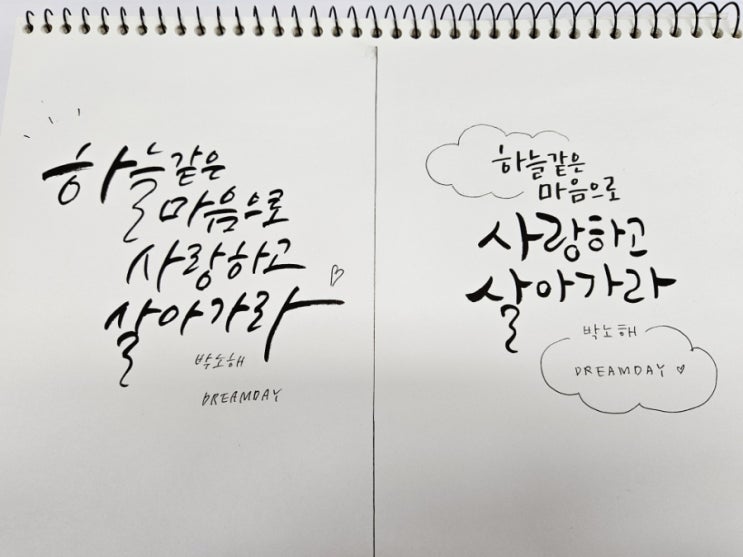 하늘같은
마음으로
사랑하고
살아가라
박노해
DREAMDAY
하늘같은
마음으로
사랑하고
살아가라
박노해
DREAMDAY